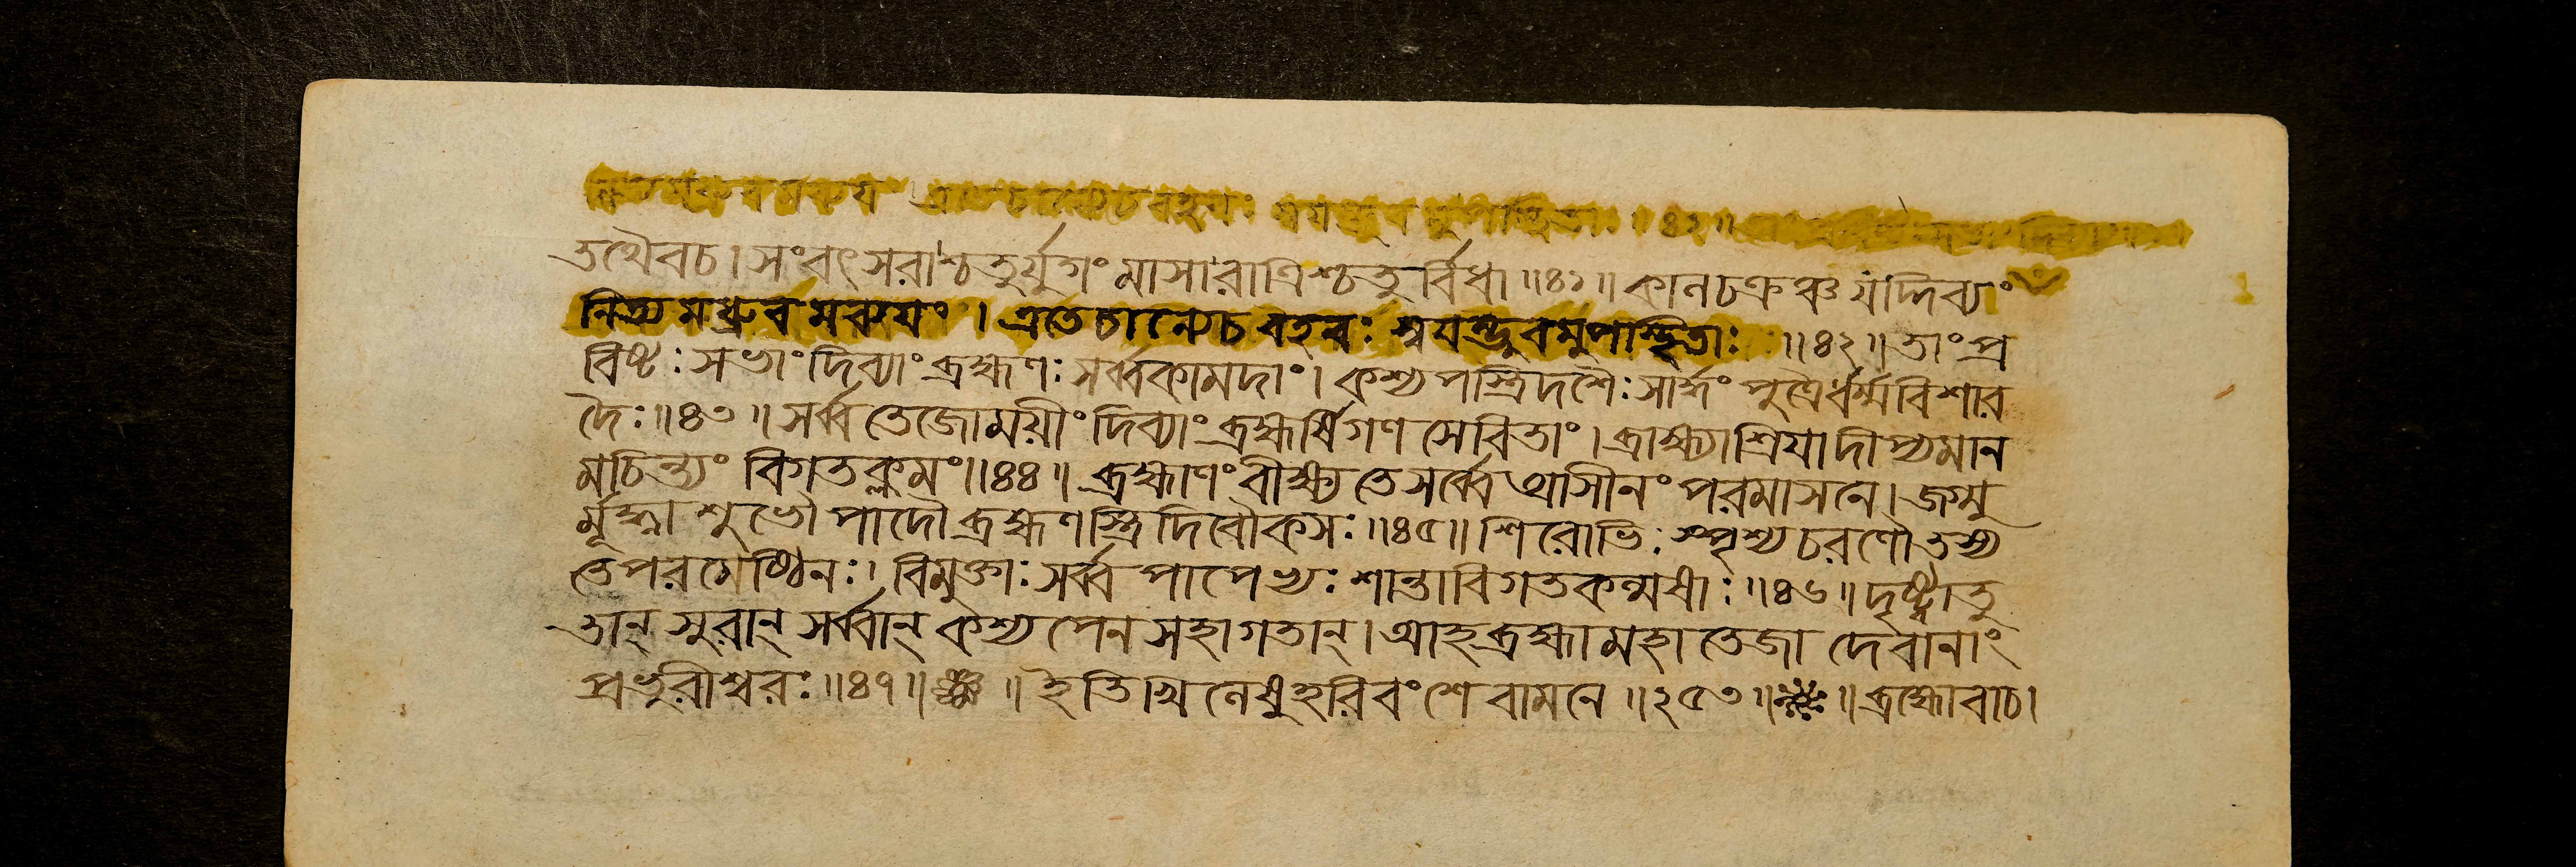 নিত্যমধ্রুবমব্যয়ং এতে চান্যেচবহবঃ স্বয়ম্ভুবমুপাস্থিতাঃ ॥৪২॥
তথৈবচ। সংবৎসরাশ্চতুর্যুগং মাসারাত্রিশ্চতুর্বিধা ॥৪১॥ কালচক্রঞ্চ যদ্দিব্যং
নিত্যমধ্রুবমব্যয়ং । এতেচান্যেচবহবঃ স্বয়ম্ভুবমুপাস্থিতাঃ ॥৪২॥ তাং প্র
বিষ্টঃ সভাং দিব্যাং ব্রহ্মণঃ সর্ব্বকামদাং। কশ্যপস্ত্রিদশৈঃ সার্দ্ধং পুত্রৈর্ধর্ম্মবিশার
দৈঃ ॥৪৩॥ সর্ব্বতেজোময়ীং দিব্যাং ব্রহ্মর্ষিগণসেবিতাং। ব্রাহ্ম্যাশ্রিয়াদীপ্যমান
মচিন্ত্যং বিগতক্লমং ॥৪৪॥ ব্রহ্মাণং বীক্ষ্য তে সর্ব্বে আসীনং পরমাসনে। জগ্মু
র্মূর্দ্ধ্না শুভৌ পাদৌ ব্রহ্মণস্ত্রিদিবৌকসঃ ॥৪৫॥ শিরোভিঃ স্পৃশ্য চরণৌ তস্য
তে পরমেষ্ঠিনঃ। বিমুক্তাঃ সর্ব্বপাপেভ্যঃ শান্তাবিগতকল্মষাঃ ॥৪৬॥ দৃষ্ট্বাতু
তান্ সুরান্ সর্ব্বান্ কশ্যপেন সহাগতান্। আহ ব্রহ্মা মহাতেজা দেবানাং
প্রভুরীশ্বরঃ ॥৪৭॥ ॥ ইতি খিলেষু হরিবংশে বামনে ॥২৫৩॥ ॥ ব্রহ্মোবাচ।